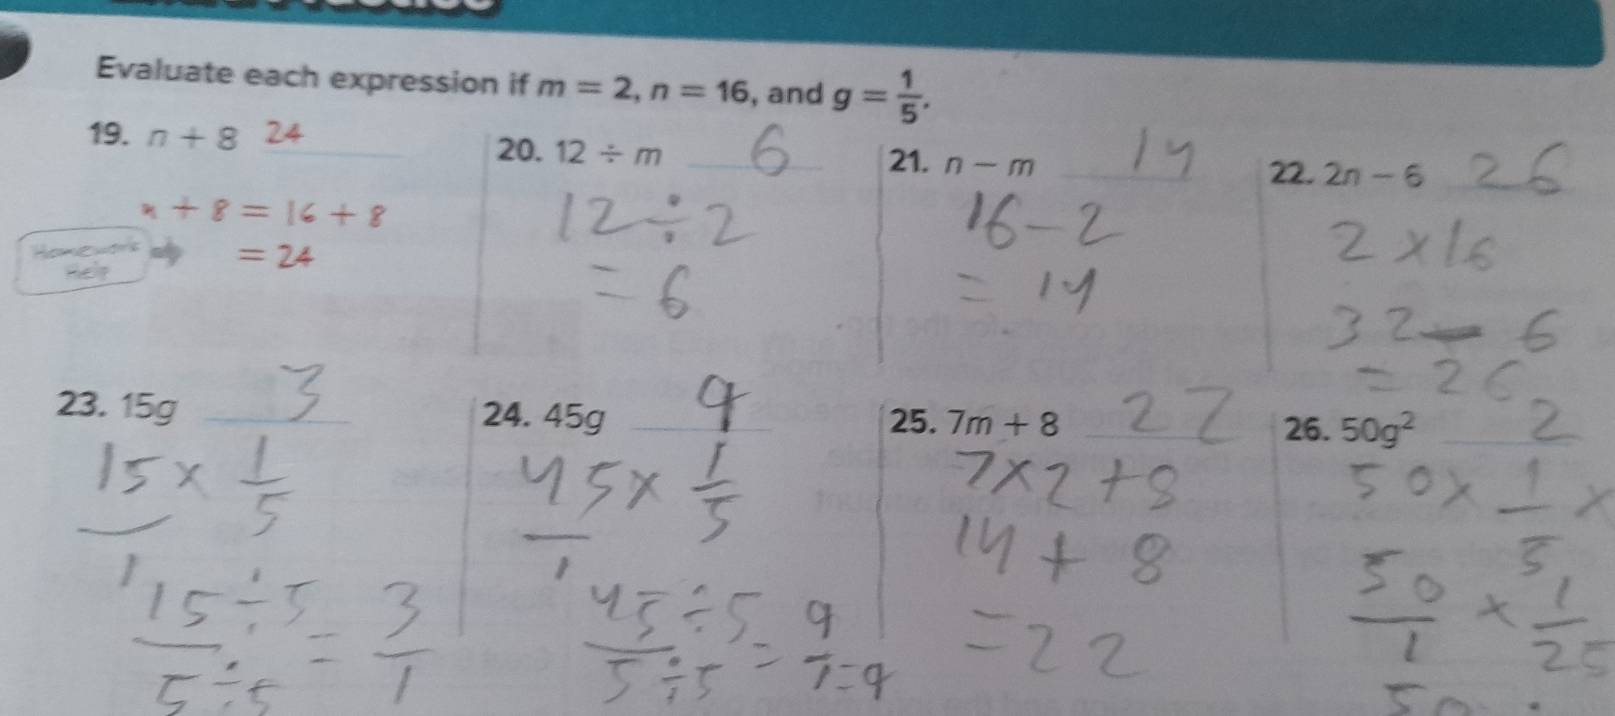 Evaluate each expression if m = 2, n = 16, and g = 1/5.
19. n + 8 24
n + 8 = 16 + 8
= 24
Homework
Help
20. 12 ÷ m 6
12 ÷ 2
= 6
21. n − m 14
16 - 2
= 14
22. 2n − 6 26
2 × 16
32 - 6
= 26
23. 15g 3
15/1 × 1/5
15 ÷ 5 / 5 ÷ 5 = 3/1
24. 45g 9
45/1 × 1/5
45 ÷ 5 / 5 ÷ 5 = 9/1 = 9
25. 7m + 8 22
7 × 2 + 8
14 + 8
= 22
26. 50g² 2
50 × 1/5 ×
50/1 × 1/25
50